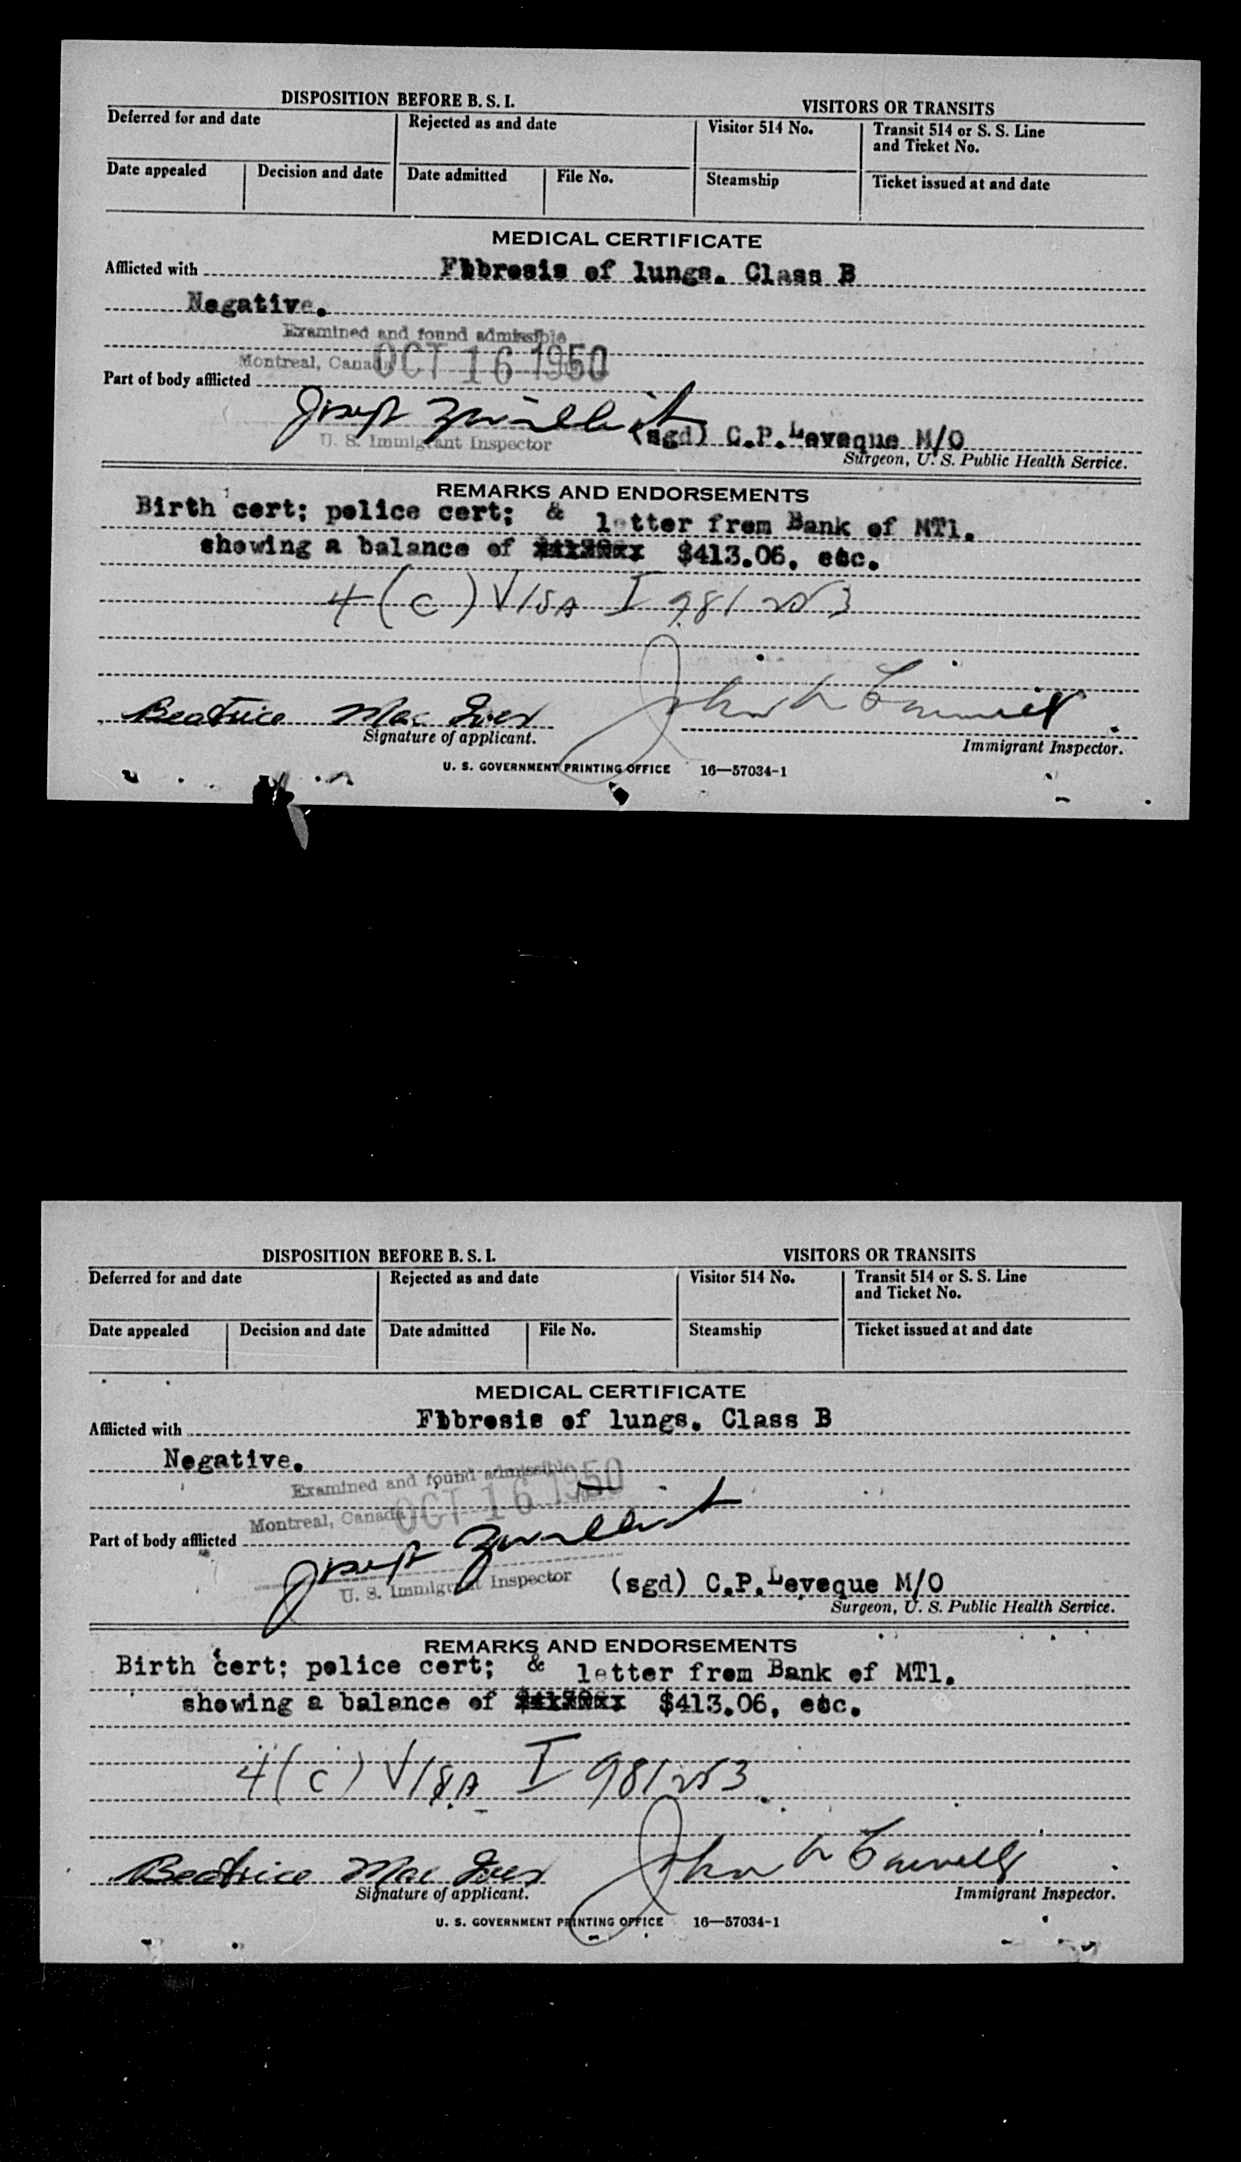 DISPOSITION BEFORE B. S. I.
VISITORS OR TRANSITS
Deferred for and date
Rejected as and date
Visitor 514 No.
Transit 514 or S. S. Line and Ticket No.
Date appealed
Decision and date
Date admitted
File No.
Steamship
Ticket issued at and date
MEDICAL CERTIFICATE
Afflicted with Fibresis of lungs. Class B
Negative.
Examined and found admissible
Montreal, Canada OCT 16 1950
Part of body afflicted
Joseph
U. S. Immigrant Inspector
(sgd) C.P.Leveque M/O
Surgeon, U. S. Public Health Service.
REMARKS AND ENDORSEMENTS
Birth cert; police cert; & letter from Bank of MTl.
showing a balance of $413.06, etc.
4(c) VISA I 981253
Beatrice Mac Iver
John
Signature of applicant.
Immigrant Inspector.
U. S. GOVERNMENT PRINTING OFFICE 16—57034-1
DISPOSITION BEFORE B. S. I.
VISITORS OR TRANSITS
Deferred for and date
Rejected as and date
Visitor 514 No.
Transit 514 or S. S. Line and Ticket No.
Date appealed
Decision and date
Date admitted
File No.
Steamship
Ticket issued at and date
MEDICAL CERTIFICATE
Afflicted with Fibresis of lungs. Class B
Negative.
Examined and found admissible
Montreal, Canada OCT 16 1950
Part of body afflicted
Joseph
U. S. Immigrant Inspector
(sgd) C.P.Leveque M/O
Surgeon, U. S. Public Health Service.
REMARKS AND ENDORSEMENTS
Birth cert; police cert; & letter from Bank of MTl.
showing a balance of $413.06, etc.
4(c) VISA I 981253
Beatrice Mac Iver
John
Signature of applicant.
Immigrant Inspector.
U. S. GOVERNMENT PRINTING OFFICE 16—57034-1